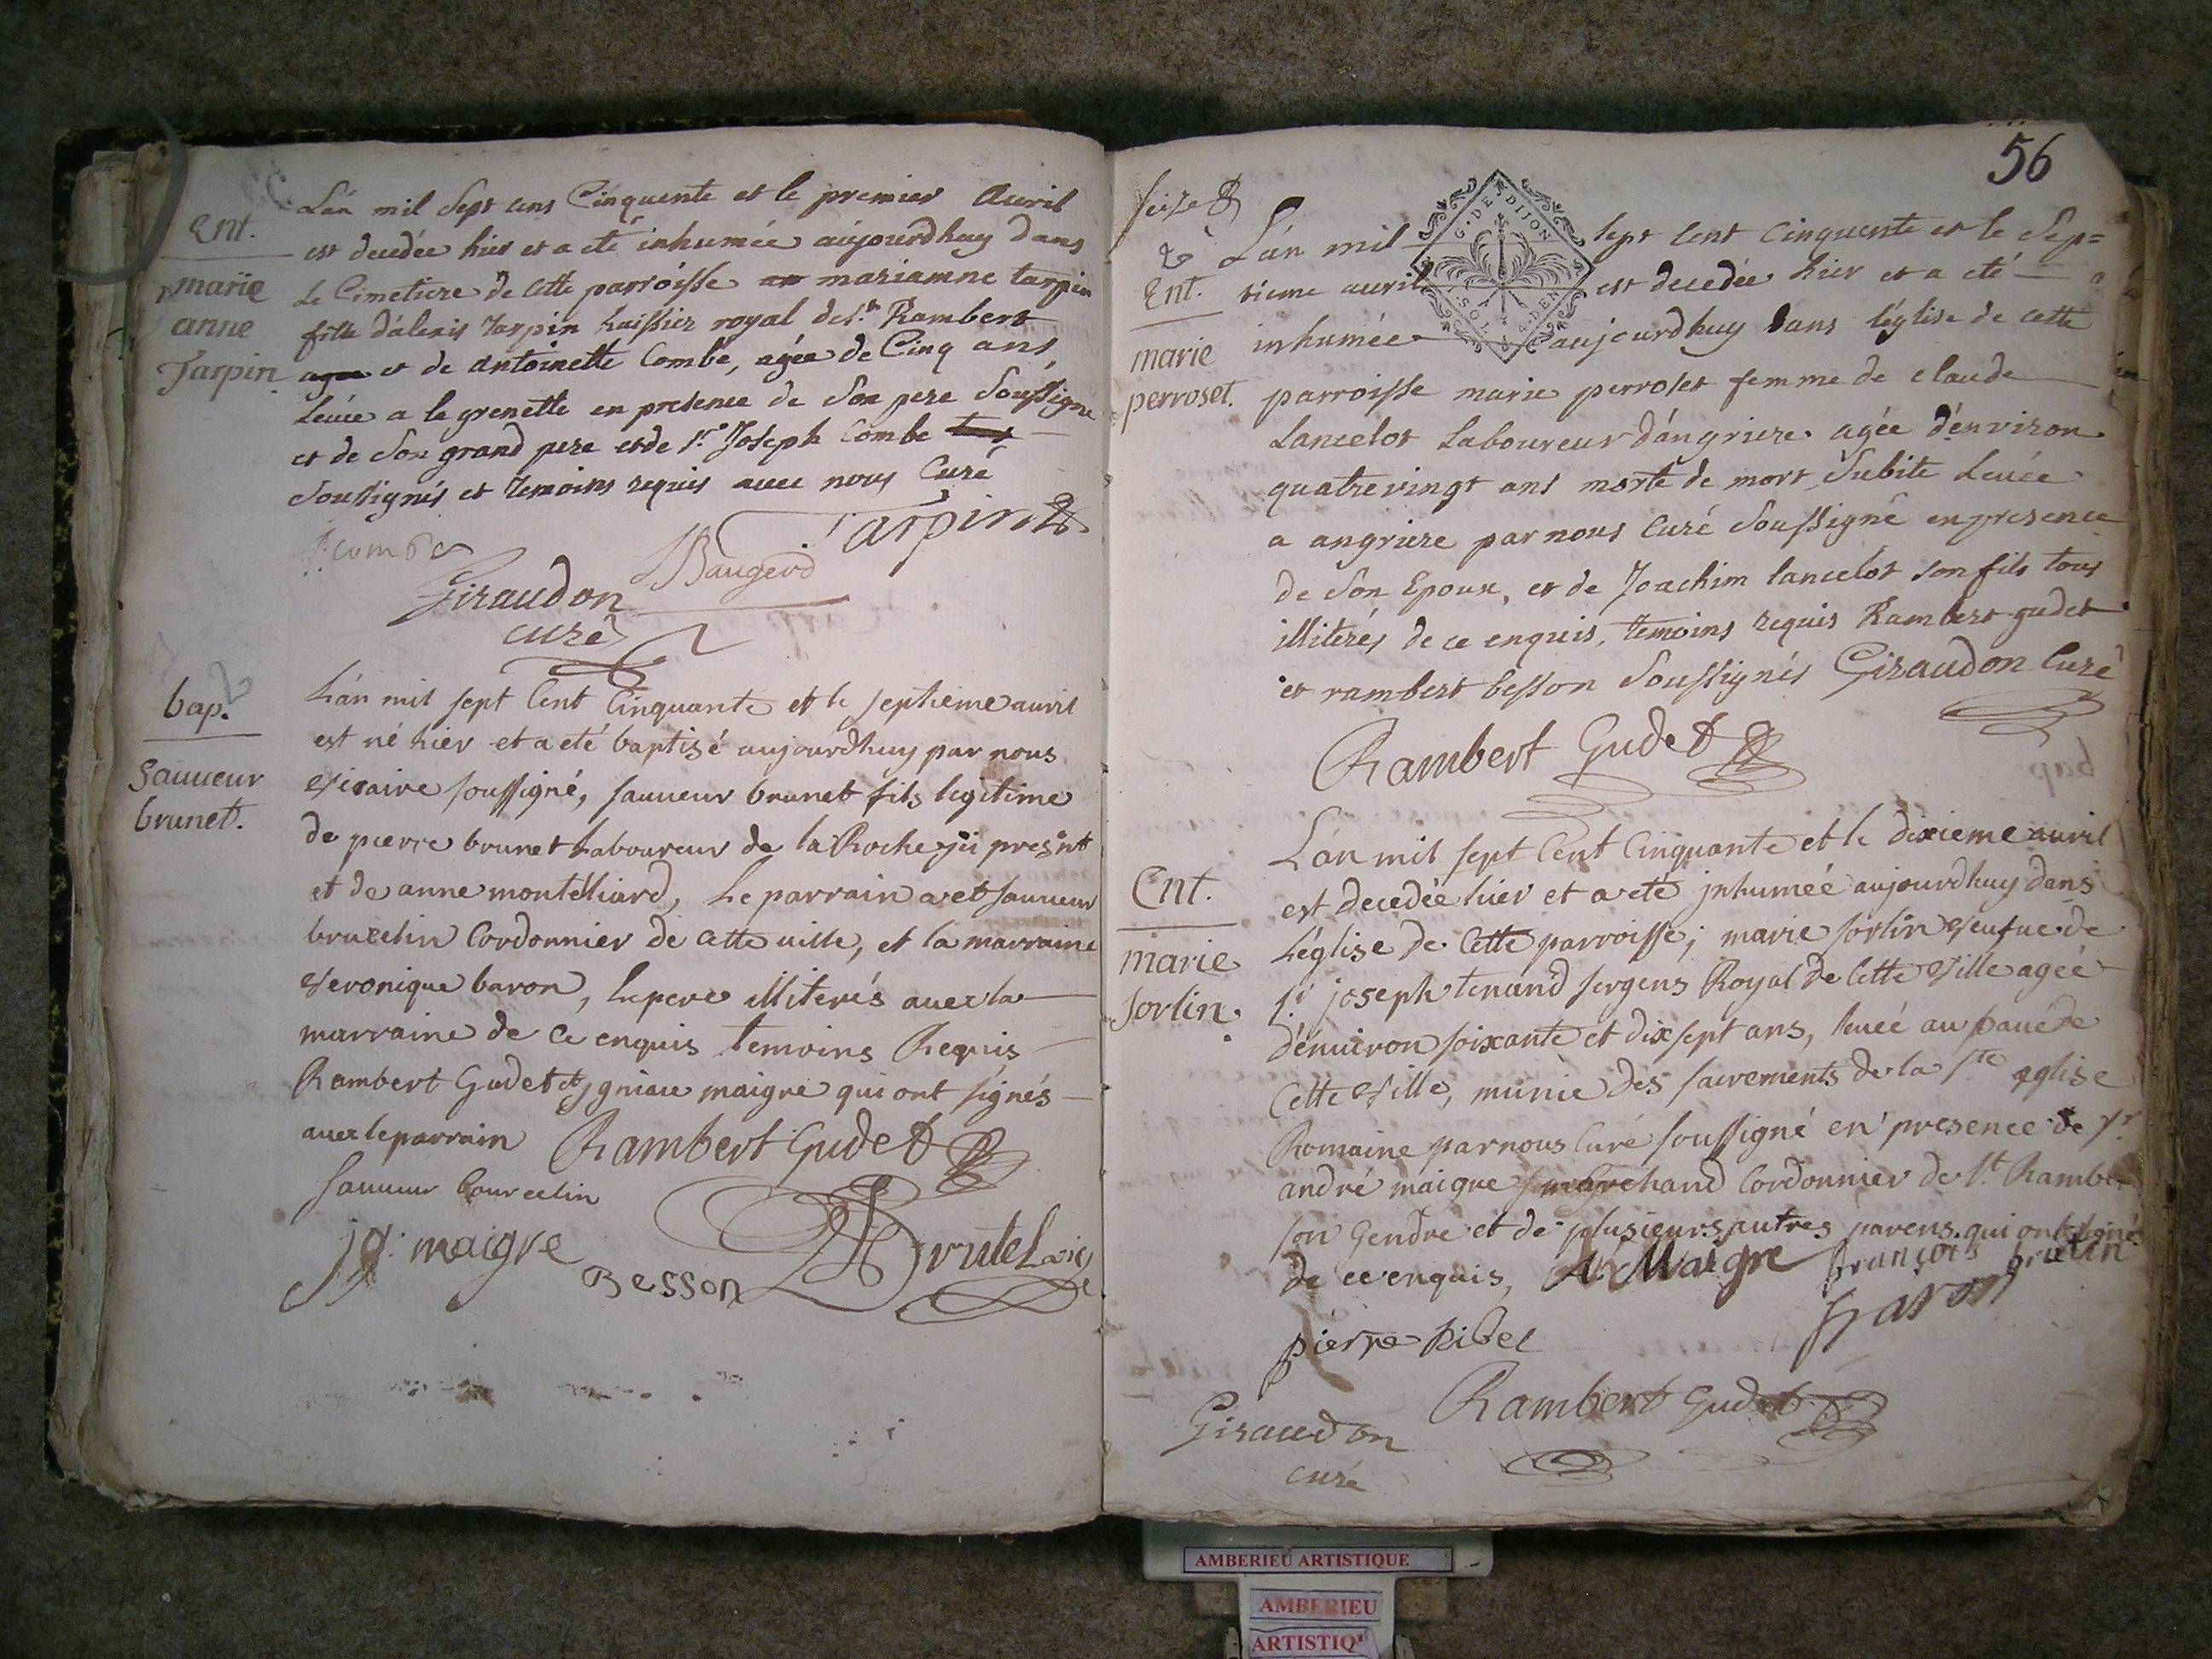 Ent.
marie
anne
Tarpin
L'an mil sept cens Cinquente et le premier Avril
est decedée hier et a eté inhumée aujourdhuy dans
le Cimetiere de cette parroisse mariamne tarpin
fille d'alexis Tarpin huissier royal de St. Rambert
et de antoinette Combe, agée de Cinq ans
levée a la grenette en presence de Son pere Soussigné
et de Son grand pere et de Sr. Joseph Combe
Soussignés et temoins requis avec nous Curé
combe
Tarpin
Baugerd
Giraudon
curé
bap.
Sauveur
brunet.
L'an mil sept Cent Cinquante et le septieme avril
est né hier et a eté baptisé aujourdhuy par nous
vicaire soussigné, sauveur brunet fils legitime
de pierre brunet Laboureur de la Roche ici present
et de anne montélliard, Le parrain a eté sauveur
bruxelin Cordonnier de cette ville, et la marraine
veronique baron, le pere illiterés avec la
marraine de ce enquis temoins Requis
Rambert Gudet et ygniace maigre qui ont signés
avec le parrain Rambert Gudet
sauveur bourcelin
jg. maigre
Besson
Brutel vic
56
seize
Ent.
marie
perroset.
L'an mil sept Cent Cinquente et le Sep=
tieme avril est decedée hier et a eté
inhumée aujourdhuy dans l'église de cette
parroisse marie perroset femme de claude
Lancelot Laboureur d'angriere agée d'environ
quatrevingt ans morte de mort Subite Levée
a angriere par nous Curé Soussigné en presence
de Son Epoux, et de Joachim lancelot son fils tous
illiterés de ce enquis, temoins requis Rambert gudet
et rambert besson Soussignés Giraudon Curé
Rambert Gudet
G. DE DIJON
Ent.
marie
Sorlin.
L'an mil sept Cent Cinquante et le dixieme avril
est decedée hier et a eté inhumée aujourdhuy dans
L'église de Cette parroisse; marie sorlin veufue de
Sr. joseph tenand sergens Royal de Cette ville agée
d'environ soixante et dix sept ans, levée au pavé de
Cette ville, munie des sacrements de la Ste eglise
Romaine par nous Curé soussigné en presence de Sr.
andré maigre marchand Cordonnier de St. Rambert
son Gendre et de plusieurs autres parens qui ont signé
de ce enquis, A. Maigre françois
baron
pierre Ribel
Rambert Gudet
Giraudon
curé
AMBERIEU ARTISTIQUE
AMBERIEU
ARTISTIQ